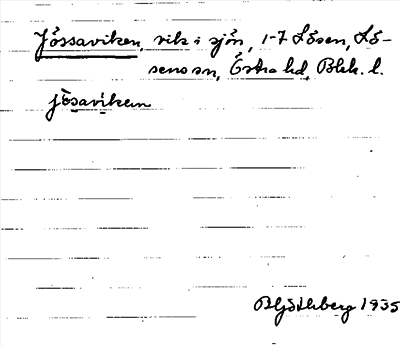 Jössaviken, vik i sjön, 1-7 Lösen, Lö-
sens sn, Östra hd, Blek. l.
jösaviken
B Hjöthberg 1935